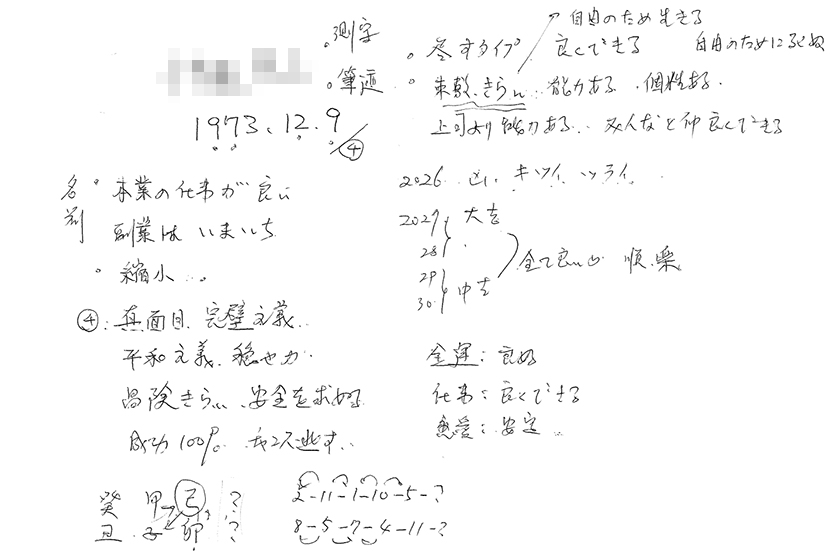 。測字
。筆迹
1973、12.9
④
名前
。本業の仕事が良い
副業は いまいち
。縮小
④:真面目、完璧主義
平和主義、穏やか
冒険きらい、安全を求める
成功100%
癸 甲 己 ?
丑 子 卯 ?
自由のため生きる
。尽すタイプ 良くできる
自由のために
。束縛、きらい 能力ある 個性ある
上司より能力ある みんなと仲良くできる
2026 凶、キツイ ツライ
2027 大吉
28
29
30 中吉
全て良い 順、楽
金運:良好
仕事:良くできる
恋愛:安定
2-11-1-10-5-?
8-5-7-4-11-?